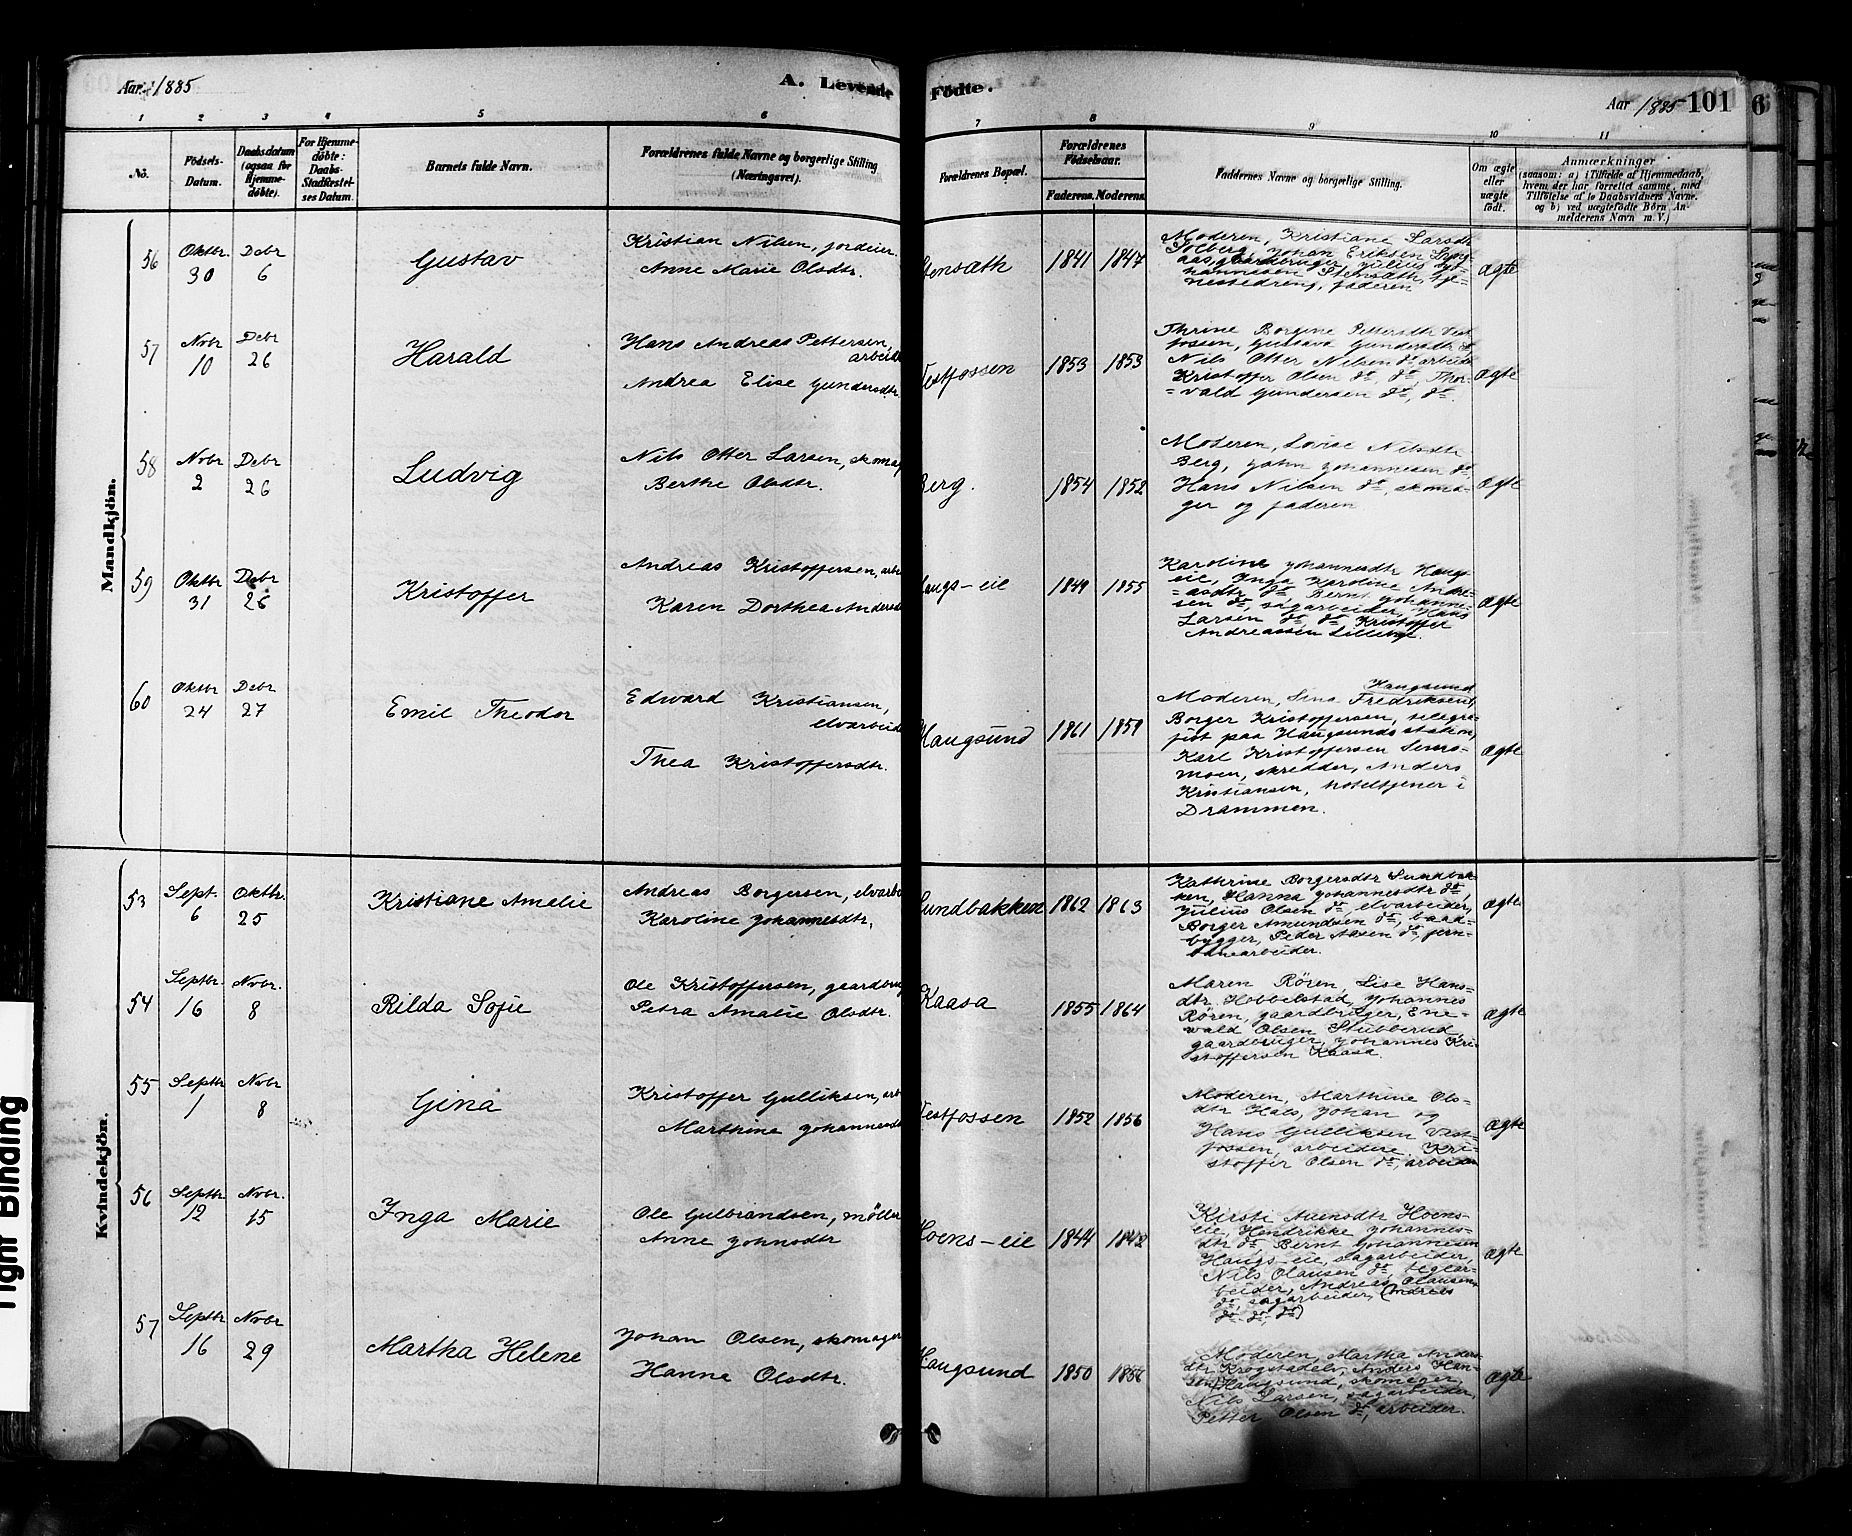 Aar 1885
A. Levende Födte.
Aar 1885 101
1 2 3 4 5 6 7 8 9 10 11
No.
Födsels-
Datum.
Daabsdatum
(ogsaa for
Hjemme-
döbte).
For Hjemme-
döbte:
Daabs-
Stadfæstel-
ses Datum.
Barnets fulde Navn.
Forældrenes fulde Navne og borgerlige Stilling
(Næringsvei).
Forældrenes Bopæl.
Forældrenes
Födselsaar.
Faderens. Moderens.
Faddernes Navne og borgerlige Stilling.
Om ægte
eller
uægte
födt.
Anmærkninger
(saasom: a) i Tilfælde af Hjemmedaab,
hvem der har forrettet samme, med
Tilföielse af to Daabsvidners Navne.
og b) ved uægtefödte Börn, An-
melderens Navn m. V.)
Mandkjön.
56
Oktbr. 30
Debr 6
Gustav
Kristian Nilsen, jordeier.
Anne Marie Olsdtr.
Stensæth
1841 1847
Moderen, Kristiane Larsdtr
Solberg, Johan Eriksen
gaardbruger, Julius Jo-
hannesen Stensæth, tje-
nestedreng, faderen
ægte
57
Novbr 10
Debr 26
Harald
Hans Andreas Pettersen,
arbeid
Andrea Elise Gundersdtr.
Vestfossen
1853 1853
Thrine Borgine Pettersdtr Vest
fossen, Gustava Gundersdtr dº
Nils Otter Nilsen dº arbeid
Kristoffer Olsen dº, dº, Thor-
=vald Gundersen dº, dº.
ægte
58
Novbr 2
Debr 26
Ludvig
Nils Otter Larsen, skomag
Berthe Olsdtr.
Berg.
1854 1852
Moderen, Lovise Nilsdtr
Berg, John Johannesen dº,
Hans Nilsen dº, skoma-
ger og faderen
ægte
59
Oktbr 31
Debr 26
Kristoffer
Andreas Kristoffersen, arb
Karen Dorthea Andersd
Haugs-eie
1849 1855
Karoline Johannesdtr Haugs-
eie, Inga Karoline Andre-
=asdtr dº Bernt Johanne-
sen dº, sagarbeider, Hans
Larsen dº, dº Kristoffer
Andreassen
ægte
60
Oktbr 24
Debr 27
Emil Theodor
Edward Kristiansen,
elvarbeid
Thea Kristoffersdtr.
Haugsund
1861 1859
Haugsund
Moderen, Lina Fredriksen,
Borger Kristoffersen, telegra-
fist paa Haugsunds station,
Karl Kristoffersen Sems-
moen, skredder, Anders
Kristiansen, hoteltjener i
Drammen.
ægte
Kvindekjön.
53
Sept. 6
Oktbr. 25
Kristiane Amalie
Andreas Borgersen, elvarb
Karoline Johannesdtr.
Sundbakken
1862 1863
Kathrine Borgersdtr Sundbak-
ken, Hanna Johannesdtr dº,
Julius Olsen dº, elvarbeider,
Borger Amundsen dº, baad-
bygger, Peder Aasen dº, jern-
banearbeider.
ægte
54
Septbr. 16
Nvbr. 8
Rilda Sofie
Ole Kristoffersen, gaardbrug
Petra Amalie Olsdtr.
Kaasa
1855 1864
Maren Rören, Lise Hans-
dtr Hobbelstad, Johannes
Rören, gaardbruger, Ene-
vald Olsen Stubberud,
gaardbruger, Johannes Kri-
stoffersen Kaasa.
ægte
55
Septbr 1
Nvbr 8
Gina
Kristoffer Gulliksen, arb
Marthine Johannesd
Vestfossen
1852 1856
Moderen, Marthine Ols-
dtr Hals, Johan og
Hans Gulliksen Vest-
fossen, arbeidere. Kri-
stoffer Olsen dº, arbeider
ægte
56
Septbr 12
Nvbr. 15
Inga Marie
Ole Gulbrandsen, möller
Anne Johnsdtr
Hoens-eie
1844
Kirsti Auensdtr Hoens-
eie, Hendrikke Johannes-
dtr dº Bernt Johannesen
Haugs-eie, sagarbeider,
Nils Olausen dº, teglar-
beider, Andreas Olausen,
dº, sagarbeider, (Andreas
dº dº, dº)
ægte
57
Septbr 16
Nvbr 29
Martha Helene
Johan Olsen, skomager
Hanna Olsdtr.
Haugsund
1850 1856
Moderen, Martha Anders
dtr Krogstadelv, Anders Han-
sen Haugsund, skomager,
Nils Larsen, sagarbeider,
Petter Olsen dº, arbeider.
ægte
Tight Binding
6